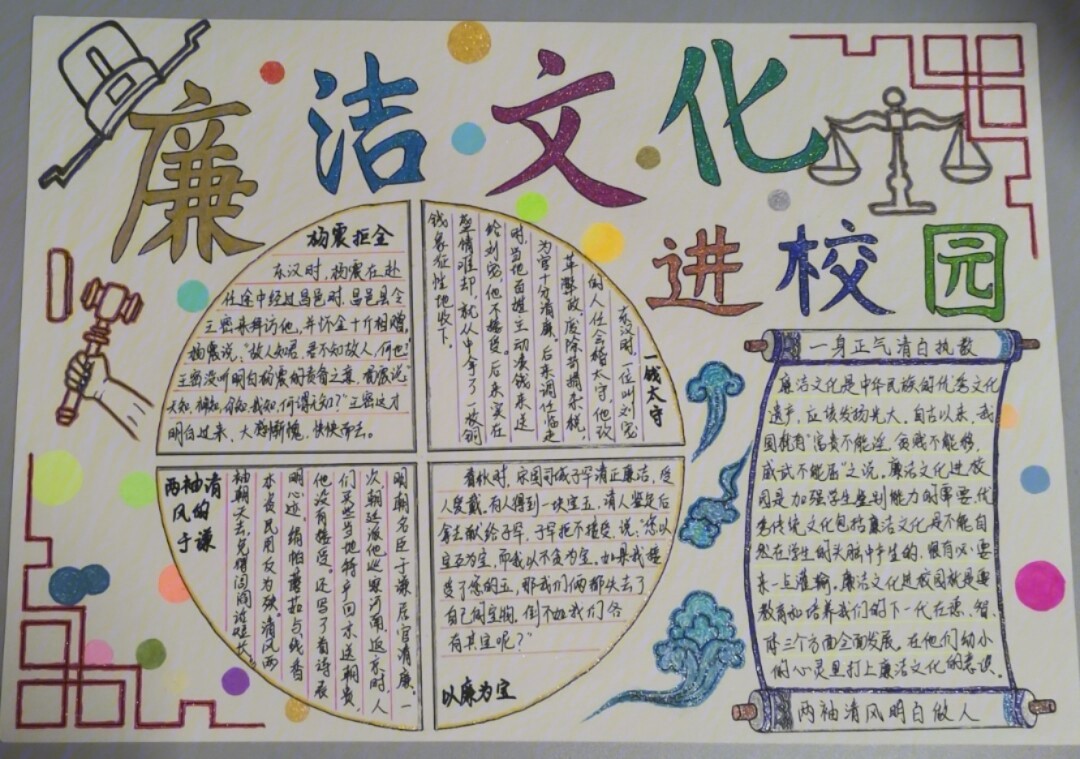 廉洁文化
进校园
杨震拒金
东汉时，杨震在赴
任途中经过昌邑时，昌邑县令
王密来拜访他，并怀金十斤相赠，
杨震说："故人知君，君不知故人，何也？"
王密没听明白杨震的责备之意，
天知，神知，我知，何谓无知？"王密这才
明白过来，大感惭愧，怏怏而去。
一钱太守
东汉时，一位叫刘宠
的人任会稽太守，他改
革弊政，废除苛捐杂税，
为官十分清廉。后来调任
时，当他面提主动凑钱来送
给刘宠，他不接受。后来实在
盛情难却，就从中拿了一枚铜
钱象征性地收下。
两袖清
风的
于谦
明朝名臣于谦居官清廉，一
次朝廷派他巡察河南，返京时，人
们买些当地特产回来送朝贵，
他没有接受。还写了首诗表
明心迹：绢帕蘑菇与线香
本资民用反为殃。清风两
袖朝天去，免得闾阎话短长
春秋时，宋国司城子罕清正廉洁，受
人爱戴。有人得到一块宝玉，请人鉴定后
拿去献给子罕，子罕拒不接受，说："您以
宝玉为宝，而我以不贪为宝。如果我接
受了您的玉，那我们俩都失去了
自己的宝物，倒不如我们各
有其宝呢？"
以廉为宝
一身正气清白执教
廉洁文化是中华民族的优秀文化
遗产，应该发扬光大。自古以来，我
国就有"富贵不能淫，贫贱不能移，
威武不能屈"之说。廉洁文化进校
园是加强学生鉴别能力的需要，优
秀传统文化包括廉洁文化是不能自
然在学生的头脑中产生的，很有必要
来一点灌输。廉洁文化进校园就是要
教育和培养我们的下一代在德、智、
体三个方面全面发展。在他们幼小
的心灵里打上廉洁文化的意识。
两袖清风明白做人